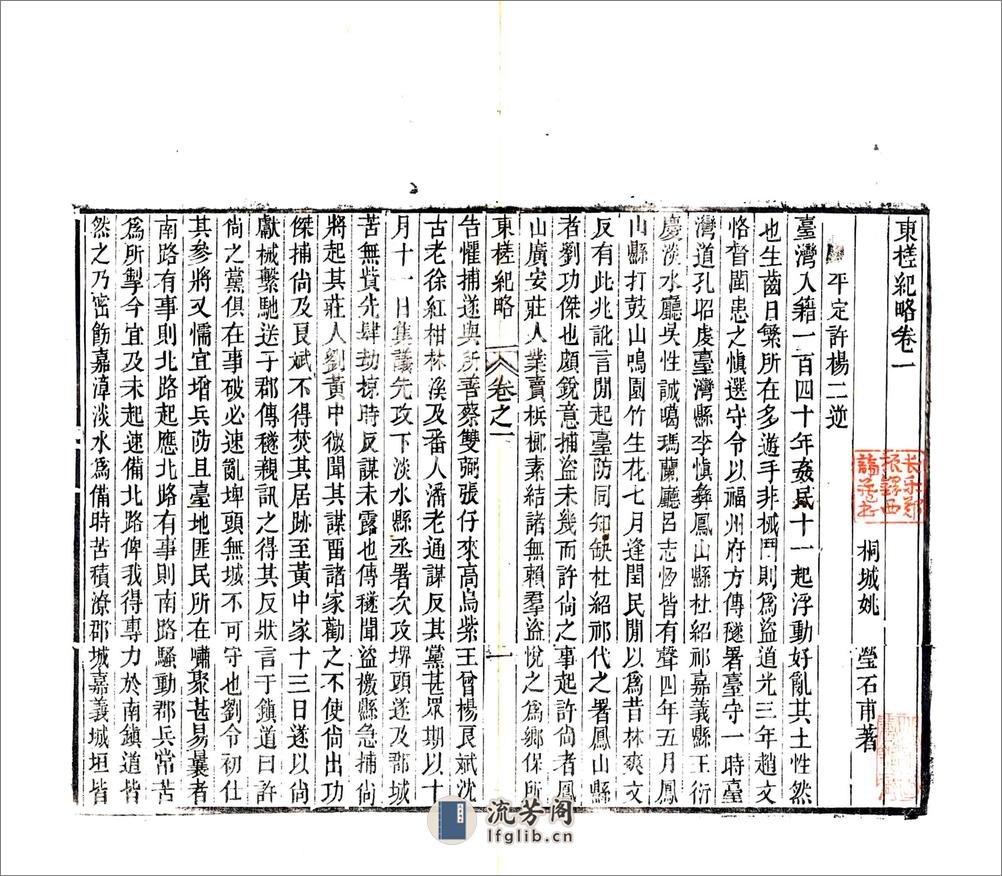 東槎紀略卷一
桐城姚 瑩石甫著
平定許楊二逆
臺灣入籍一百四十年姦民十一起浮動好亂其土性然
也生齒日繁所在多遊手非械鬥則爲盜道光三年趙文
恪督閩患之愼選守令以福州府方傳穟署臺守一時臺
灣道孔昭虔臺灣縣李愼彝鳳山縣杜紹祁嘉義縣王衍
慶淡水廳吳性誠噶瑪蘭廳呂志恆皆有聲四年五月鳳
山縣打鼓山鳴園竹生花七月逢閏民閒以爲昔林爽文
反有此兆訛言閒起臺防同知缺杜紹祁代之署鳳山縣
者劉功傑也頗銳意捕盜未幾而許尙之事起許尙者鳳
山廣安莊人業賣梹榔素結諸無賴羣盜悅之爲鄉保所
東槎紀略
卷之一
一
告懼捕遂與所善蔡雙弼張仔來高烏紫王曾楊良斌沈
古老徐紅柑林溪及番人潘老通謀反其黨甚眾期以十
月十一日集議先攻下淡水縣丞署次攻埤頭遂及郡城
苦無貲先肆劫掠時反謀未露也傳穟聞盜檄縣急捕尙
將起其莊人劉黃中微聞其謀畱諸家勸之不使尙出功
傑捕尙及良斌不得焚其居跡至黃中家十三日遂以尙
獻械繫馳送于郡傳穟親訊之得其反狀言于鎭道曰許
尙之黨俱在事破必速亂埤頭無城不可守也劉令初仕
其參將又懦宜增兵防且臺地匪民所在嘯聚甚易曩者
南路有事則北路起應北路有事則南路騷動郡兵常苦
爲所掣今宜及未起速備北路俾我得專力於南鎭道皆
然之乃密飭嘉漳淡水爲備時苦積潦郡城嘉義城垣皆
长乐郑
振铎西
谛藏书
流芳阁
lfglib.cn